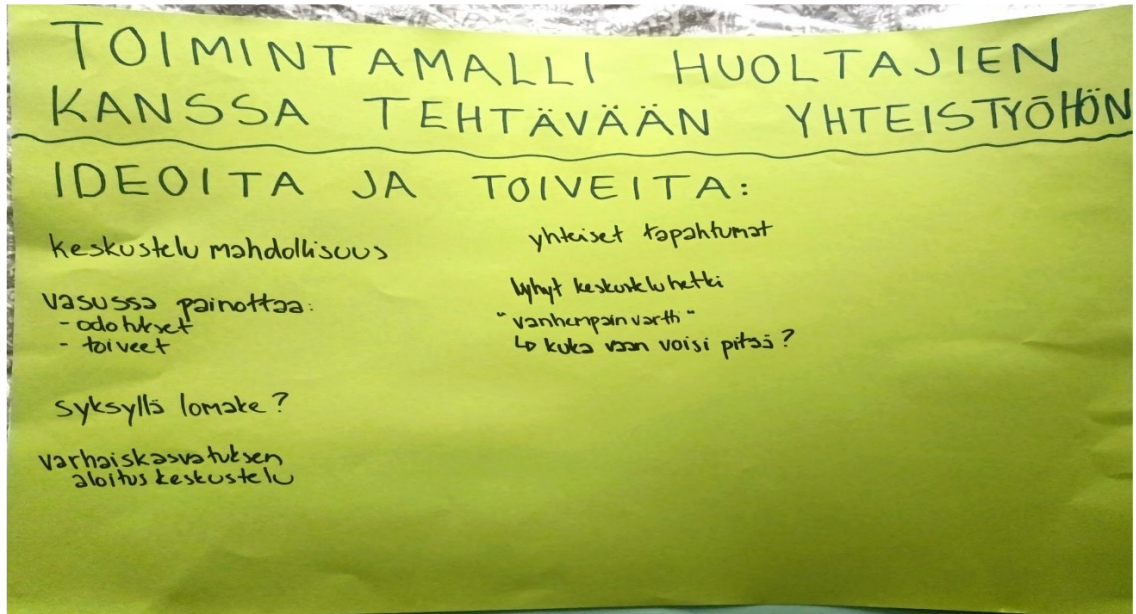 TOIMINTAMALLI HUOLTAJIEN
KANSSA TEHTÄVÄÄN YHTEISTYÖHÖN
IDEOITA JA TOIVEITA:
keskustelu mahdollisuus
vasussa painottaa:
- odotukset
- toiveet
syksyllä lomake?
varhaiskasvatuksen
aloituskeskustelu
yhteiset tapahtumat
lyhyt keskusteluhetki
"vanhempainvartti"
↳ kuka vaan voisi pitää?